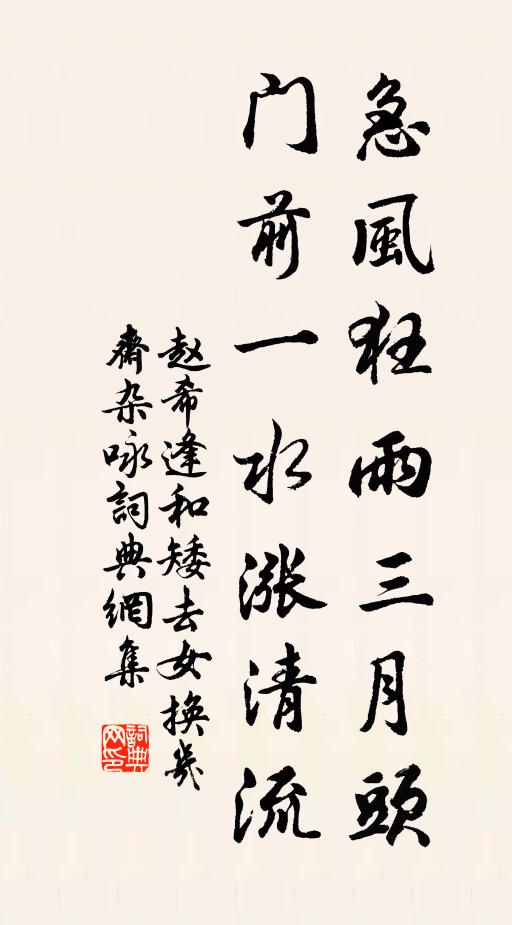 急風狂雨三月頭
门前一水漲清流
赵希逢和矮去女換幾
齋杂咏詞典網集
詞典网印